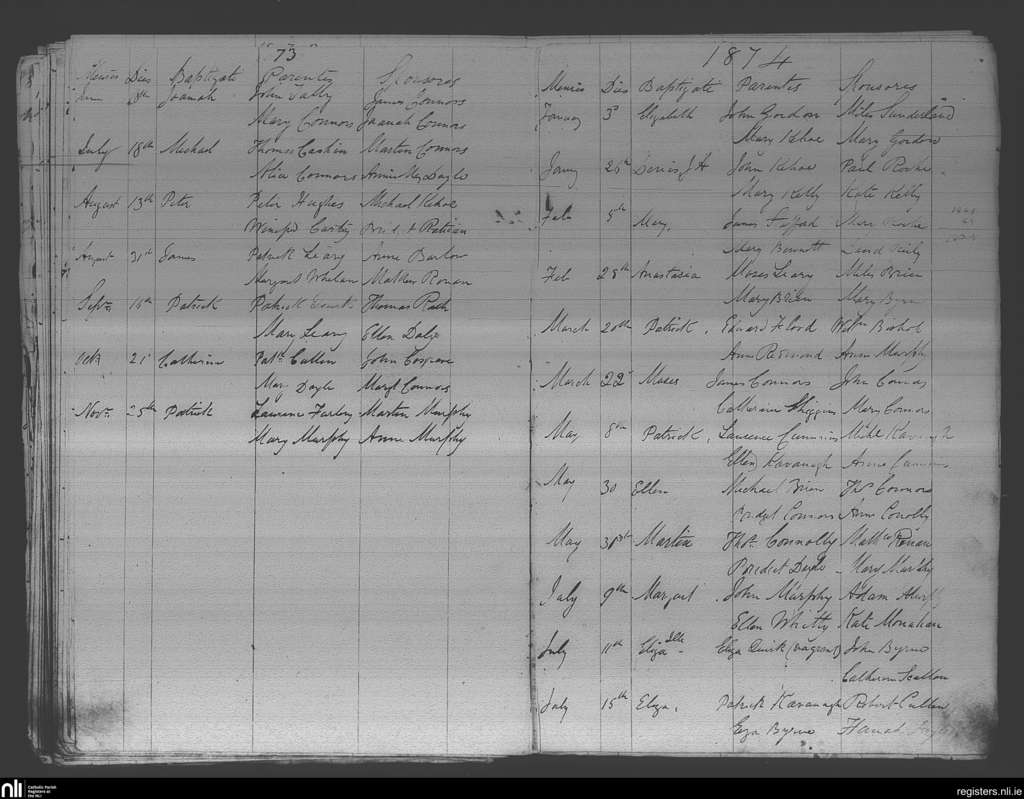 "73"
Menses Dies Baptizate Parentes Sponsores
June 8th Joanah John Vally James Connors
Mary Connors Joanah Connors
July 18th Michael Thomas Caskin Martin Connors
Alice Connors Annie Mary Doyle
August 13th Peter Peter Hughes Michael Kehoe
Winifrd Carthy Bridet
August 31st James Patrick Leary Anne Barlow
Margaret Whelan Mathew Ronan
Sept. Patrick Patrick Thomas Rath
Mary Leary Ellen Daly
Octb 21 Catherine Patk Cullen John Cosgrave
Mary Doyle Margt Connors
Novr. 25th Patrick Laurence Farley Martin Murphy
Mary Murphy Anne Murphy
1874
Menses Dies Baptizate Parentes Sponsores
January 3d Elizabeth John Gordon Miles Sunderland
Mary Kehoe Mary Gordon
Janry 25th Denis J. H John Kehoe Paul Rooke
Mary Kelly Kate Kelly
Feb 5th Mary James
Mary Bennett
Feb 28th Anastasia Moses Leary Miles Brien
Mary Brien Mary Byrne
March 20th Patrick Edward Flood Willm
Ann Redmond Ann Murphy
March 22d Moses James Connors John Connors
Catherine Higgins Mary Connors
May 8th Patrick Laurence Cummins Michl Kavanagh
Ellen Kavanagh Anne Cummins
May 30 Ellen Michael Brien Ths Connors
Bridget Connors Ann Conolly
May 31st Martin Thos. Connolly Mathw Ronan
Bridet Doyle Mary Murphy
July 9th Margaret John Murphy Adam
Ellen Whitty Kate Monahan
July 11th Eliza Ille Eliza Quirk (vagrant) John Byrne
Catherine Scallan
July 15th Eliza Patrick Kavanagh Robert Cullen
Eza Byrne Hanah
nli
Catholic Parish
Registers at
the NLI
registers.nli.ie